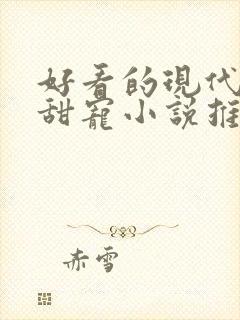 好看的現代
甜寵小說推
赤雪